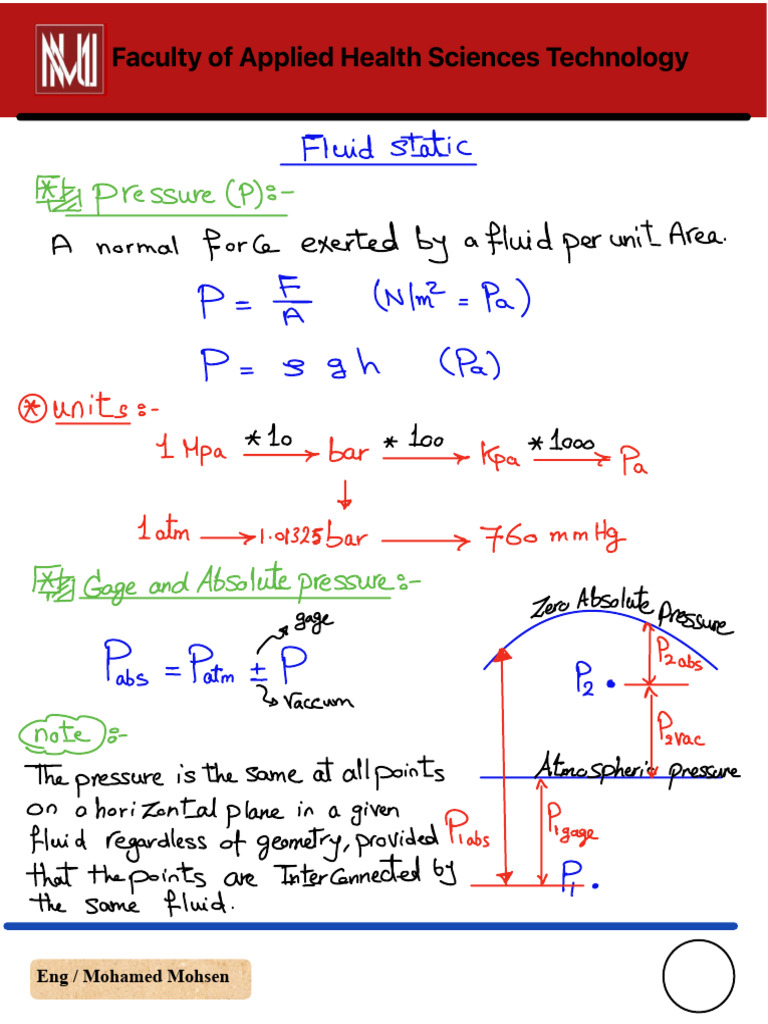 NU
Faculty of Applied Health Sciences Technology
Fluid static
* Pressure (P):-
A normal force exerted by a fluid per unit Area.
P = F/A (N/m² = Pa)
P = ρ g h (Pa)
* units:-
1 Mpa *10 → bar *100 → Kpa *1000 → Pa
↓
1 atm → 1.01325 bar → 760 mmHg
* Gage and Absolute pressure:-
gage
P abs = P atm ± P
Vaccum
Zero Absolute Pressure
P2 abs
P2
P2 vac
Atmospheric pressure
P1 abs
P1 gage
P1
note:-
The pressure is the same at all points
on a horizontal plane in a given
fluid regardless of geometry, provided
that the points are InterConnected by
the same fluid.
Eng / Mohamed Mohsen